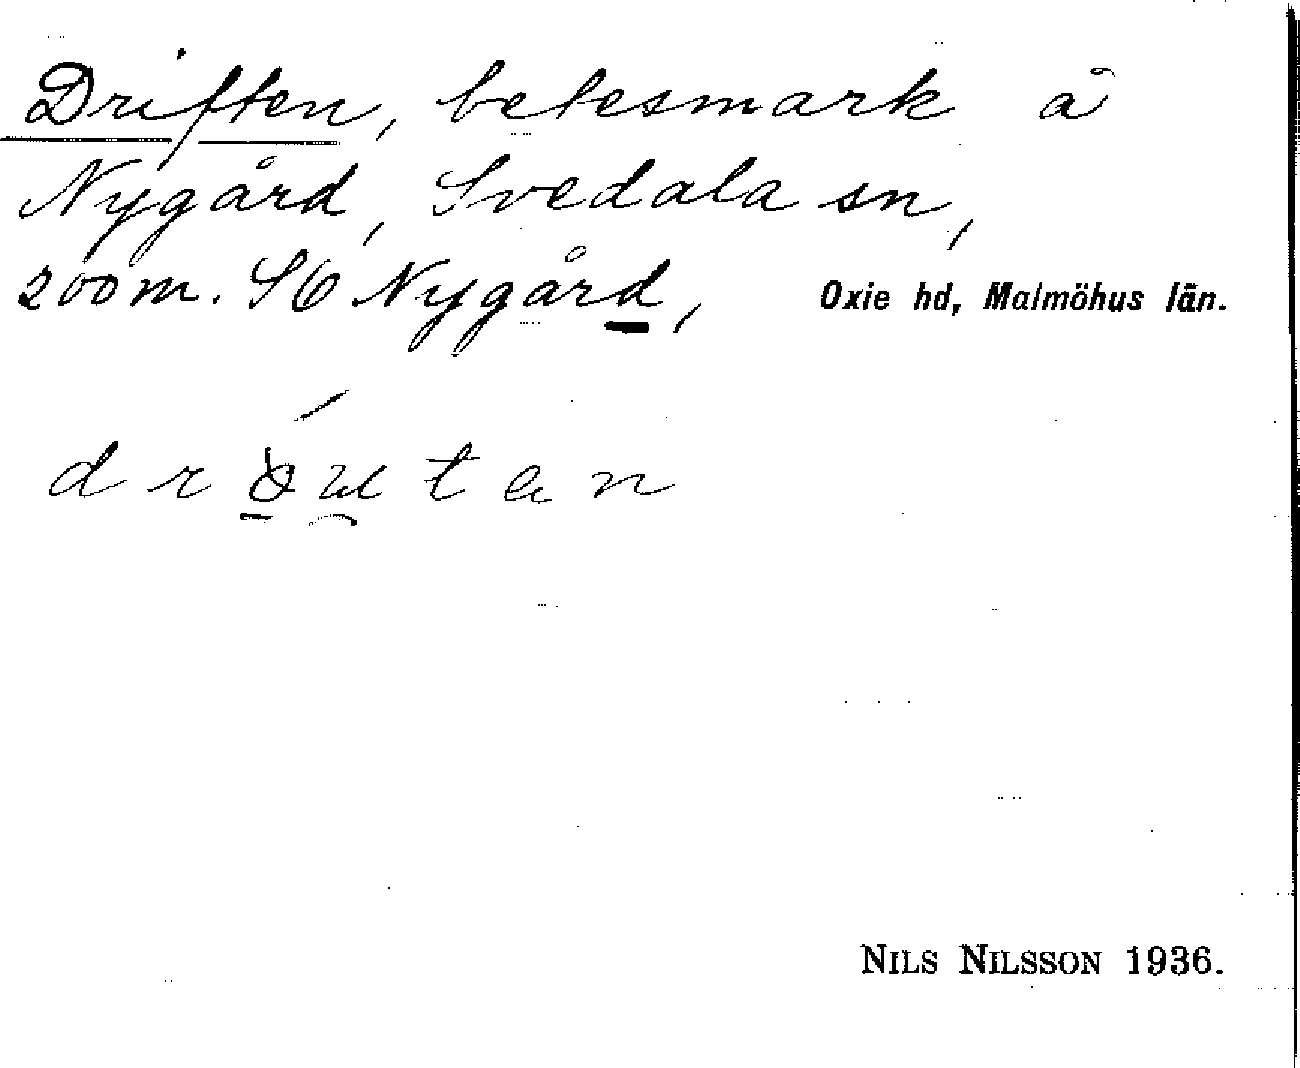 Driften, betesmark å
Nygård, Svedala sn,
200 m. SO Nygård, Oxie hd, Malmöhus län.
NILS NILSSON 1936.